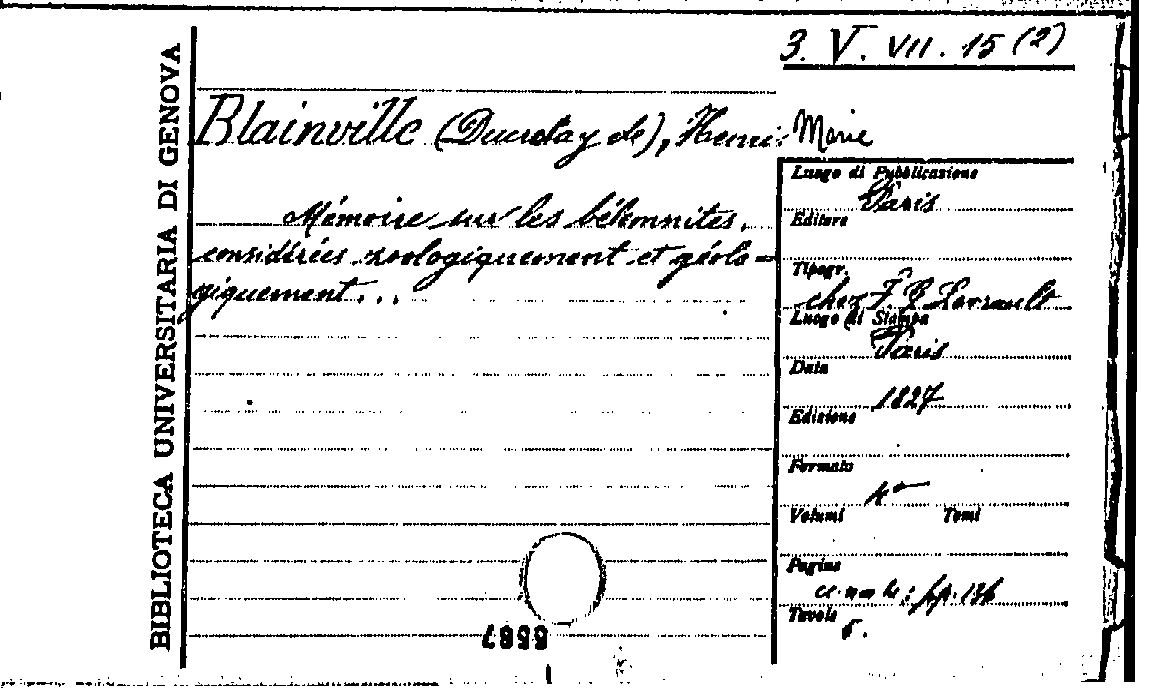 3. V. VII. 15 (2)
BIBLIOTECA UNIVERSITARIA DI GENOVA
Blainville (Ducrotay de), Henri Marie
Mémoire sur les bélemnites,
considérées zoologiquement et géolo=
giquement...
Luogo di Pubblicazione
Paris
Editore
Tipogr.
chez F. G. Levrault
Luogo di Stampa
Paris
Data
1827
Edizione
Formato
4°
Volumi Tomi
Pagine
pp. 136
Tavole
5.
5587